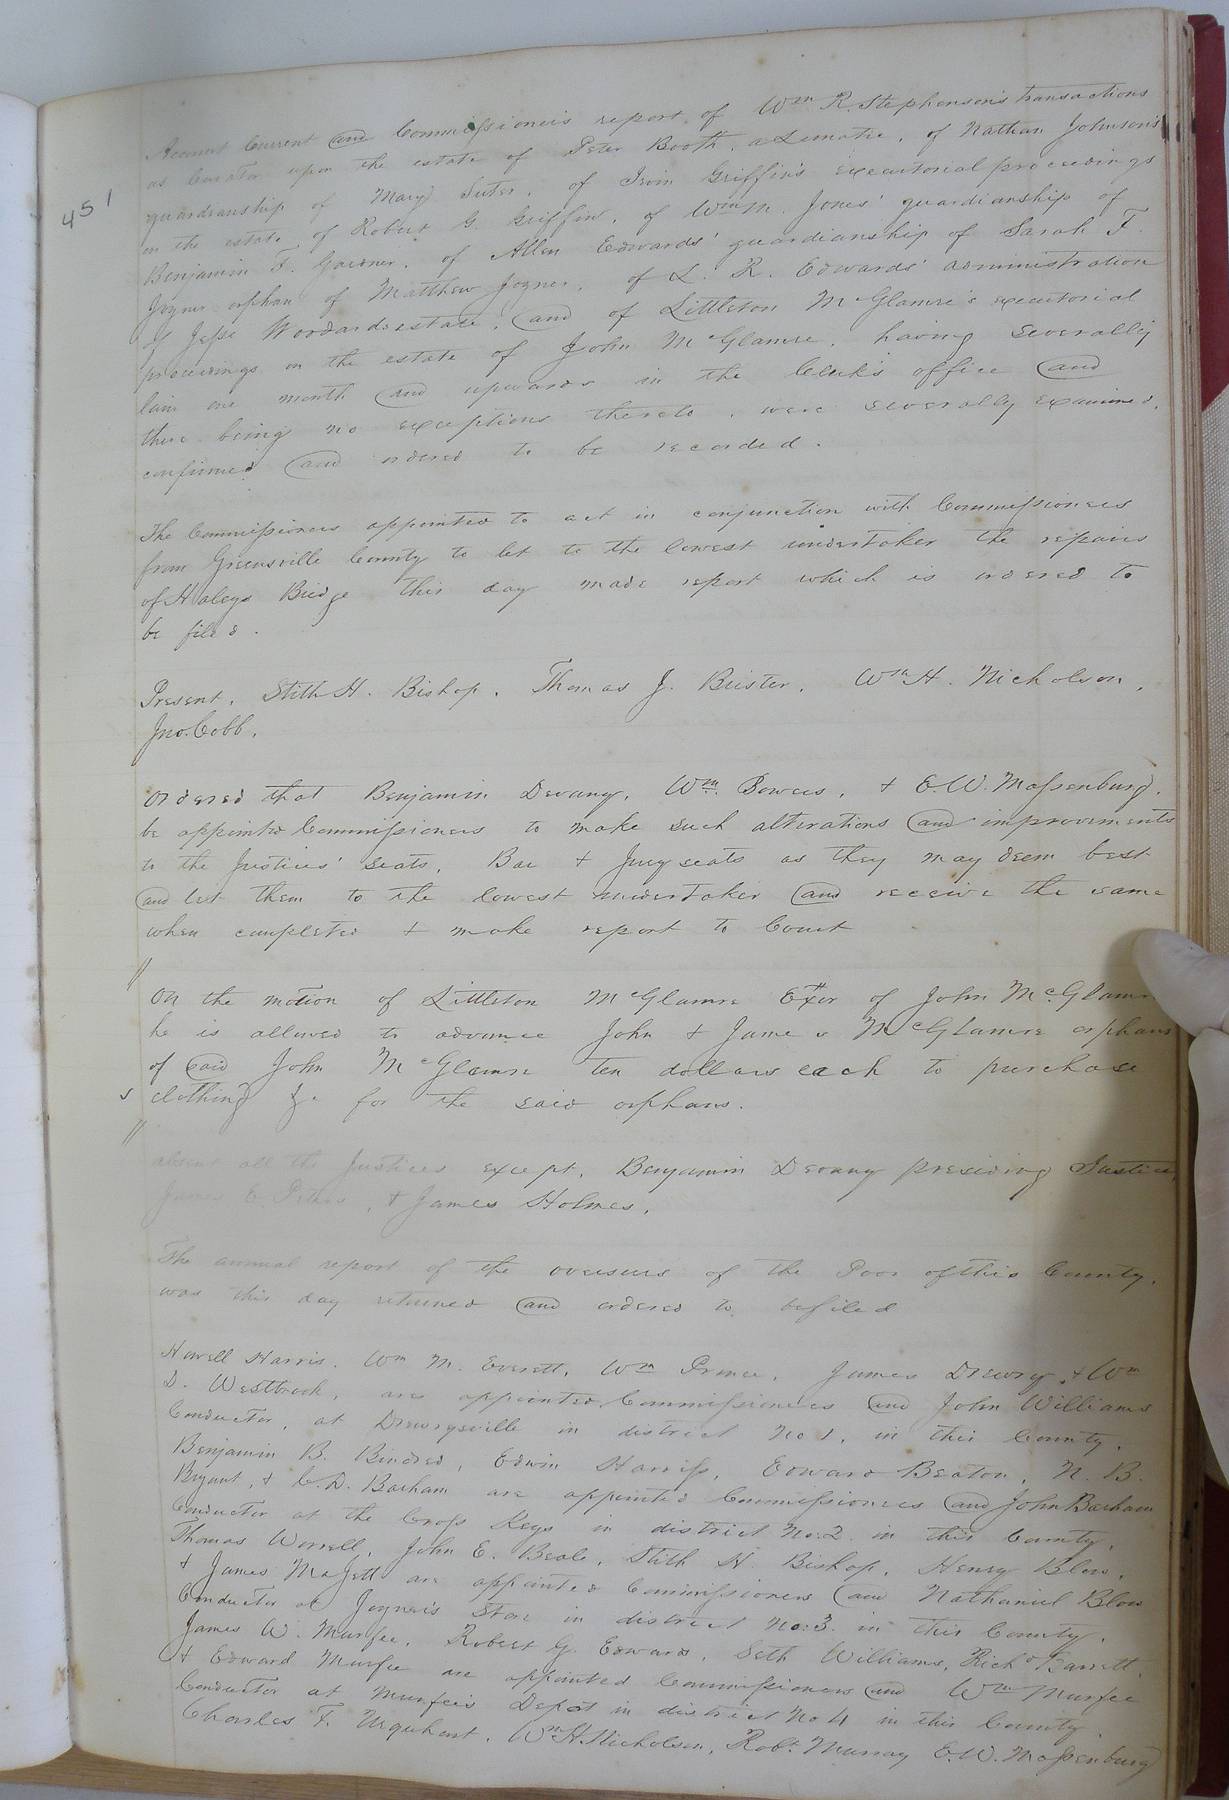 451
Account Current and Commissioners report of Wm R. Stephenson's transactions
as Curator upon the estate of Peter Booth, a Lunatic, of Nathan Johnson's
guardianship of Mary Suter, of Irvin Griffin's executorial proceedings
on the estate of Robert G. Griffin, of Wm M. Jones' guardianship of
Benjamin F. Gardner, of Allen Edwards' guardianship of Sarah F.
Joyner orphan of Matthew Joyner, of L. R. Edwards' administration
of Jesse Woodards estate, and of Littleton McGlamre's executorial
proceedings on the estate of John McGlamre, having severally
lain one month and upwards in the Clerk's office and
there being no exceptions thereto, were severally examined,
confirmed and ordered to be recorded.
The Commissioners appointed to act in conjunction with Commissioners
from Greensville County to let to the lowest undertaker the repairs
of Haleys Bridge this day made report which is ordered to
be filed.
Present, Stith H. Bishop, Thomas J. Brister, Wm H. Nicholson,
Jno. Cobb.
Ordered that Benjamin Devany, Wm. Bowers, + E. W. Massenburg,
be appointed Commissioners to make such alterations and improvements
to the Justices' seats, Bar + Jury seats as they may deem best
and let them to the lowest undertaker and receive the same
when completed + make report to Court
//
On the motion of Littleton McGlamre Exor of John McGlamre
he is allowed to advance John + James McGlamre orphans
of said John McGlamre ten dollars each to purchase
s clothing &c for the said orphans.
//
absent all the Justices except, Benjamin Devany presiding Justice,
James E Peters, + James Holmes.
The annual report of the overseers of the Poor of this County,
was this day returned and ordered to be filed
Howell Harris, Wm M. Everett, Wm Prince, James Drewry, + Wm
D. Westbrook, are appointed Commissioners and John Williams
Conductor, at Drewrysville in district No 1, in this County.
Benjamin B. Bindred, Edwin Harriss, Edward Beaton, N. B.
Bryant, + C. D. Barham are appointed Commissioners and John Barham
Conductor at the Cross Keys in district No. 2. in this County.
Thomas Worrell, John E. Beale, Stith H. Bishop, Henry Blow,
+ James Majett are appointed Commissioners and Nathaniel Blow
Conductor at Joyner's Store in district No. 3. in this County.
James W. Murfee, Robert G. Edwards, Seth Williams, Richd Barrett,
+ Edward Murfee are appointed Commissioners and Wm Murfee
Conductor at Murfee's Depot in district No 4 in this County.
Charles F. Urquhart, Wm H. Nicholson, Robt. Murray E. W. Massenburg